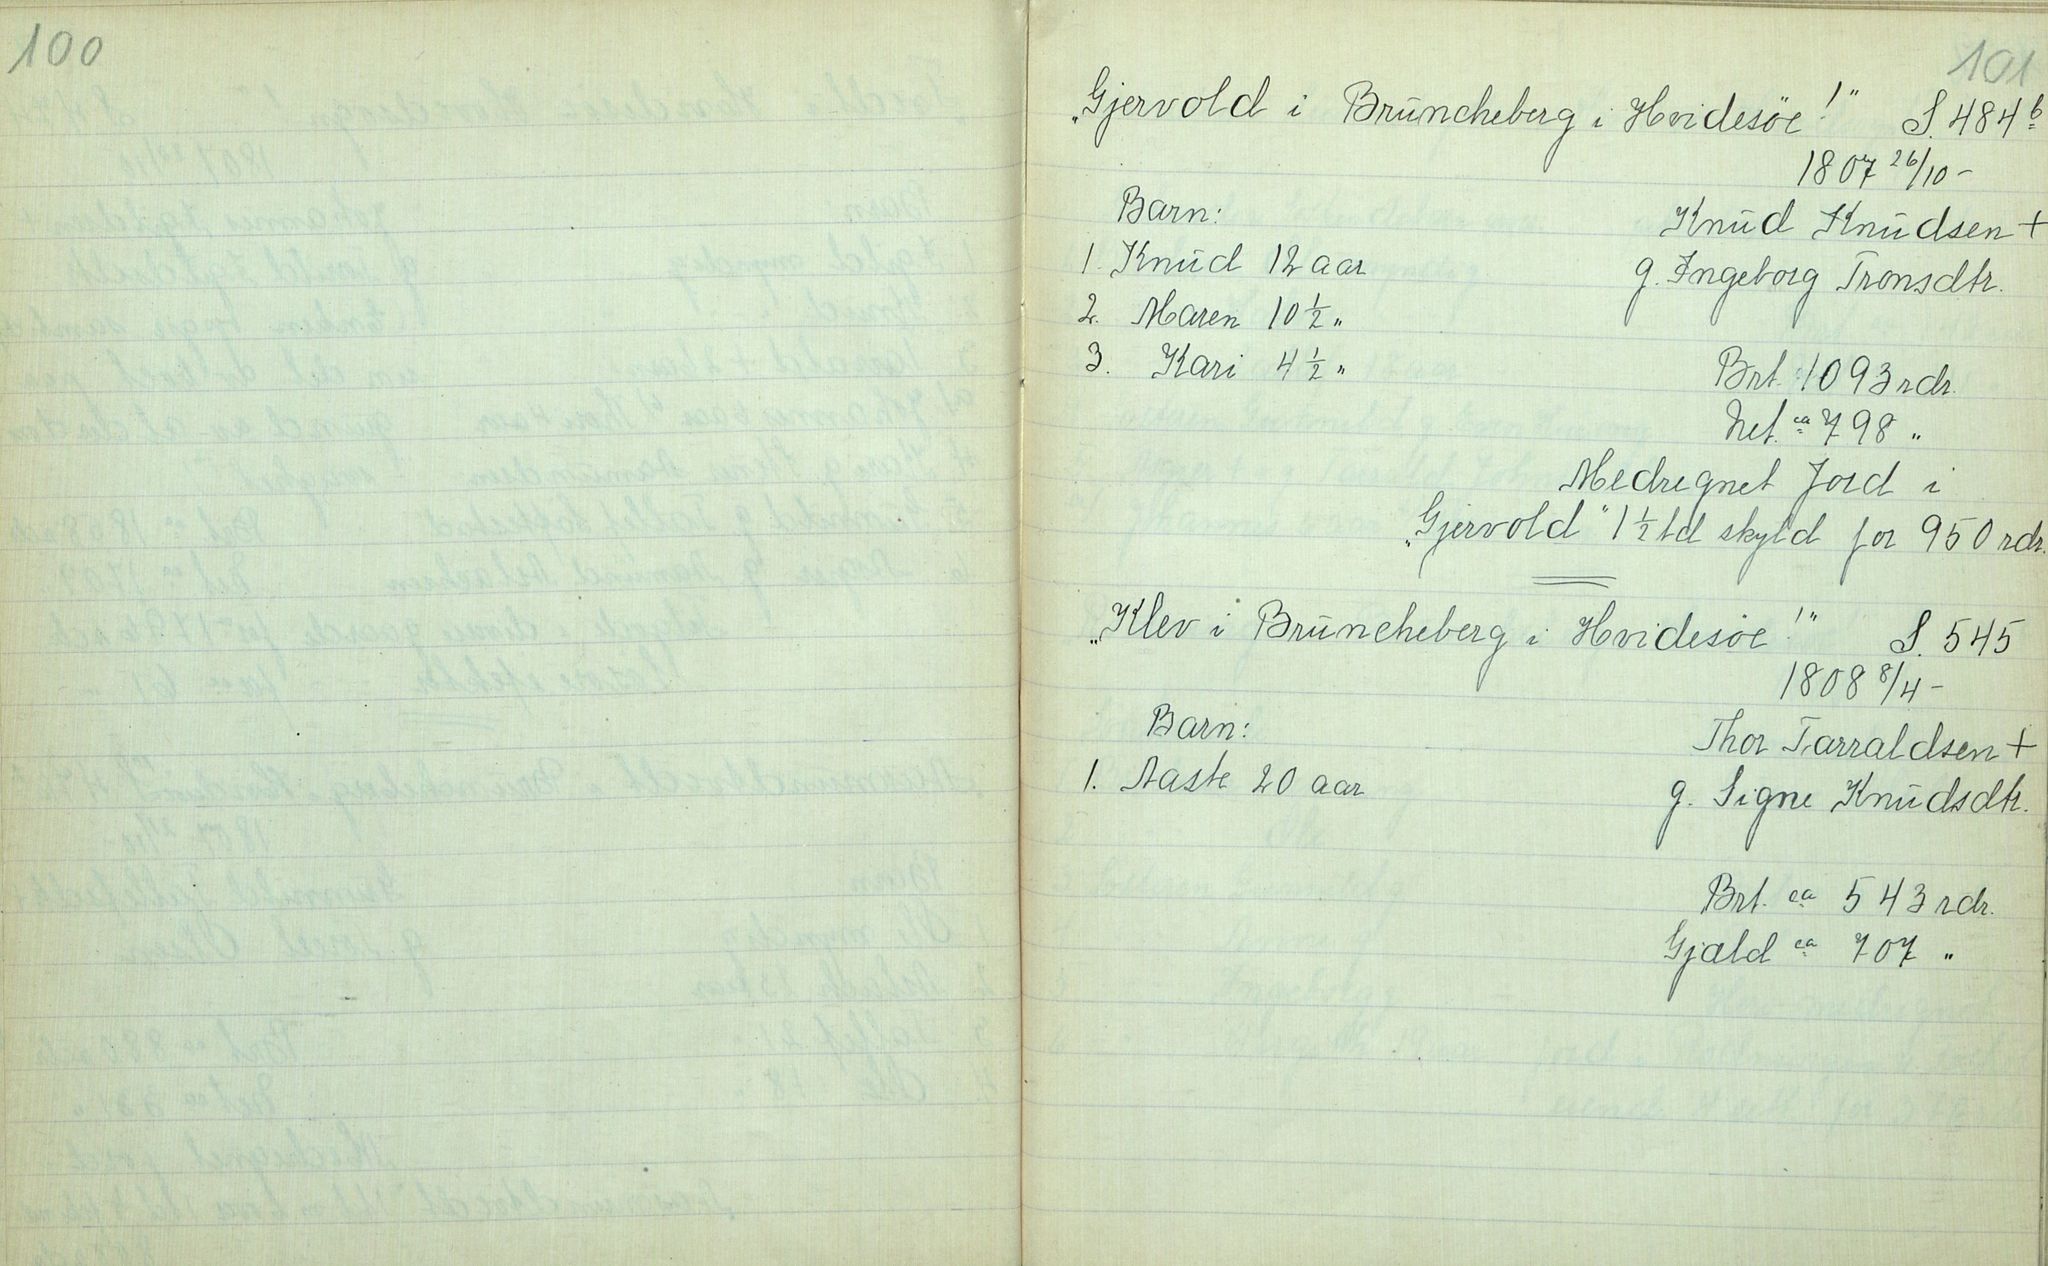 100
101
„Gjervold i Brüncheberg i Hvidesöe!" S. 484 b
1807 26/10 -
Barn: Knüd Knüdsen +
1. Knüd 12 aar g. Ingeborg Tronsdtr.
2. Maren 10 ½ "
3. Kari 4 ½ " Brt. 1093 rdr.
Net. ca 798 "
Medregnet Jord i
„Gjervold" 1 ½ td skyld for 950 rdr.
„Klev i Brüncheberg i Hvidesöe!" S. 545
1808 8/4 -
Barn: Thor Tarraldsen +
1. Aaste 20 aar g. Signe Knüdsdtr.
Brt. ca 543 rdr.
Gjæld ca 707 "